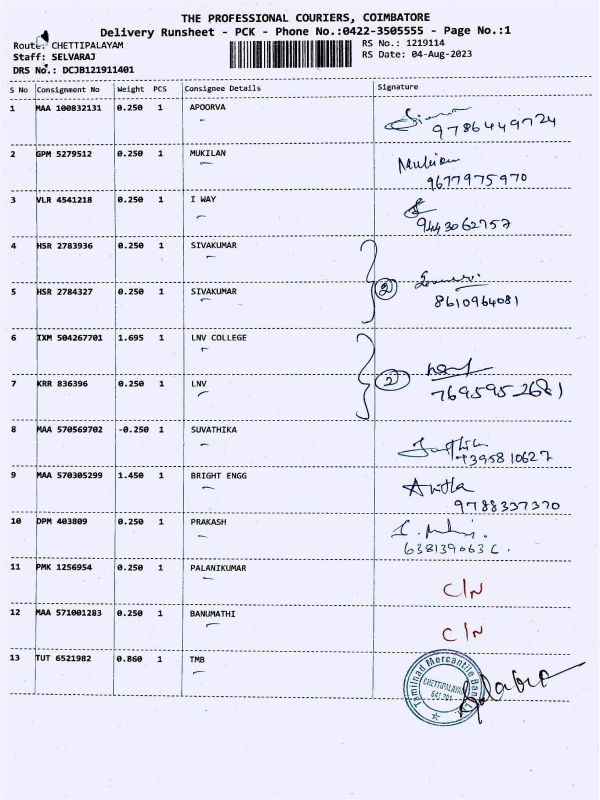 THE PROFESSIONAL COURIERS, COIMBATORE
Delivery Runsheet - PCK - Phone No.:0422-3505555 - Page No.:1
Route: CHETTIPALAYAM RS No.: 1219114
Staff: SELVARAJ RS Date: 04-Aug-2023
DRS No.: DCJB121911401
S No Consignment No Weight PCS Consignee Details Signature
1 MAA 100832131 0.250 1 APOORVA
9786449724
2 GPM 5279512 0.250 1 MUKILAN
Mukilan
9677975970
3 VLR 4541218 0.250 1 I WAY
9443062757
4 HSR 2783936 0.250 1 SIVAKUMAR
2
5 HSR 2784327 0.250 1 SIVAKUMAR
8610964081
6 IXM 504267701 1.695 1 LNV COLLEGE
2
7 KRR 836396 0.250 1 LNV
7695952681
8 MAA 570569702 -0.250 1 SUVATHIKA
7395810627
9 MAA 570305299 1.450 1 BRIGHT ENGG
Anitha
9788337370
10 DPM 403809 0.250 1 PRAKASH
638139063
11 PMK 1256954 0.250 1 PALANIKUMAR
C/N
12 MAA 571001283 0.250 1 BANUMATHI
C/N
13 TUT 6521982 0.860 1 TMB
Tamilnad Mercantile Bank
CHETTIPALAYAM
641 201